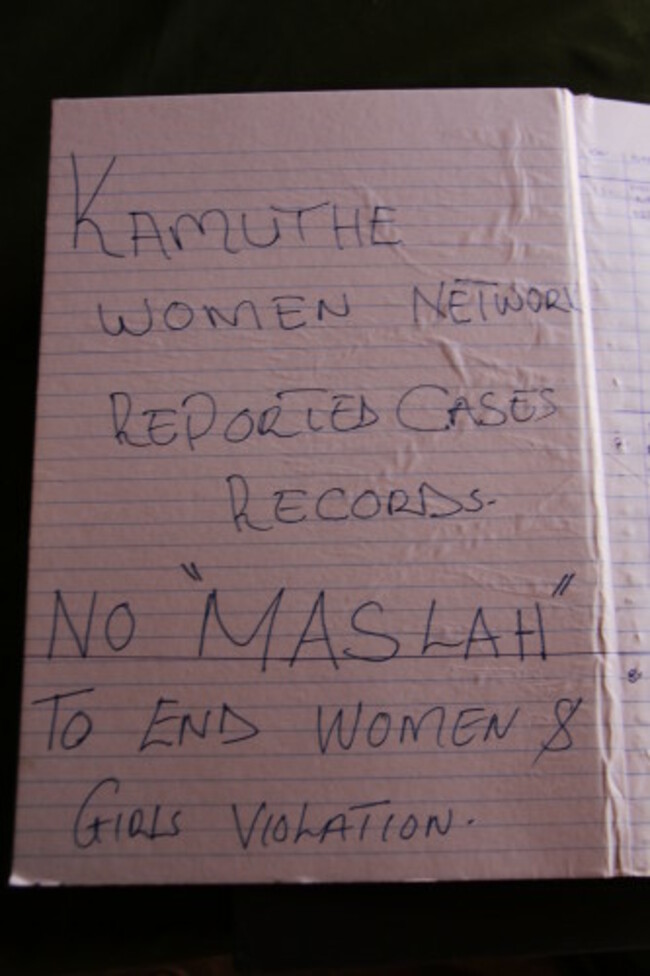 KAMUTHE
WOMEN NETWORK
REPORTED CASES
RECORDS.
NO "MASLAH"
TO END WOMEN &
GIRLS VIOLATION.